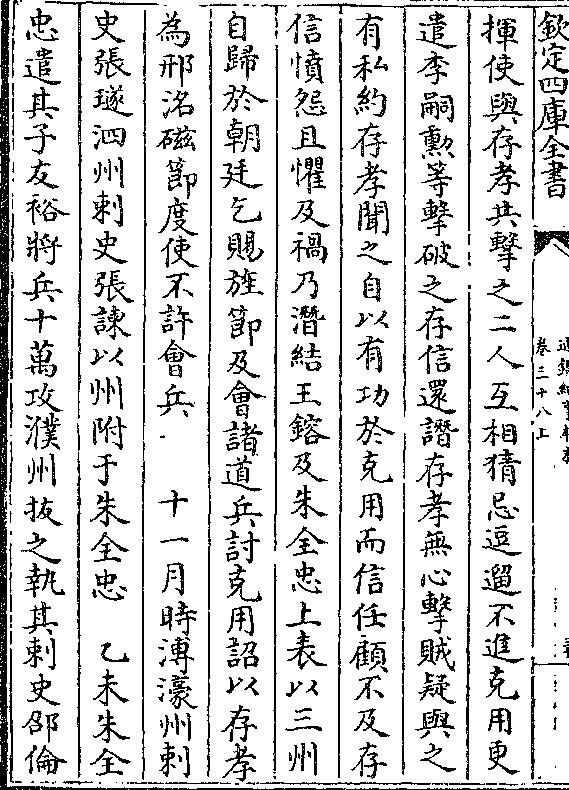 欽定四庫全書
卷三十八上
揮使與存孝共擊之二人互相猜忌逗遛不進克用更
遣李嗣勲等擊破之存信還譖存孝無心擊賊疑與之
有私約存孝聞之自以有功於克用而信任顧不及存
信憤怨且懼及禍乃潛結王鎔及朱全忠上表以三州
自歸於朝廷乞賜旌節及會諸道兵討克用詔以存孝
為邢洺磁節度使不許會兵　十一月時溥濠州刺
史張璲泗州刺史張諫以州附于朱全忠　乙未朱全
忠遣其子友裕將兵十萬攻濮州拔之執其刺史邵倫